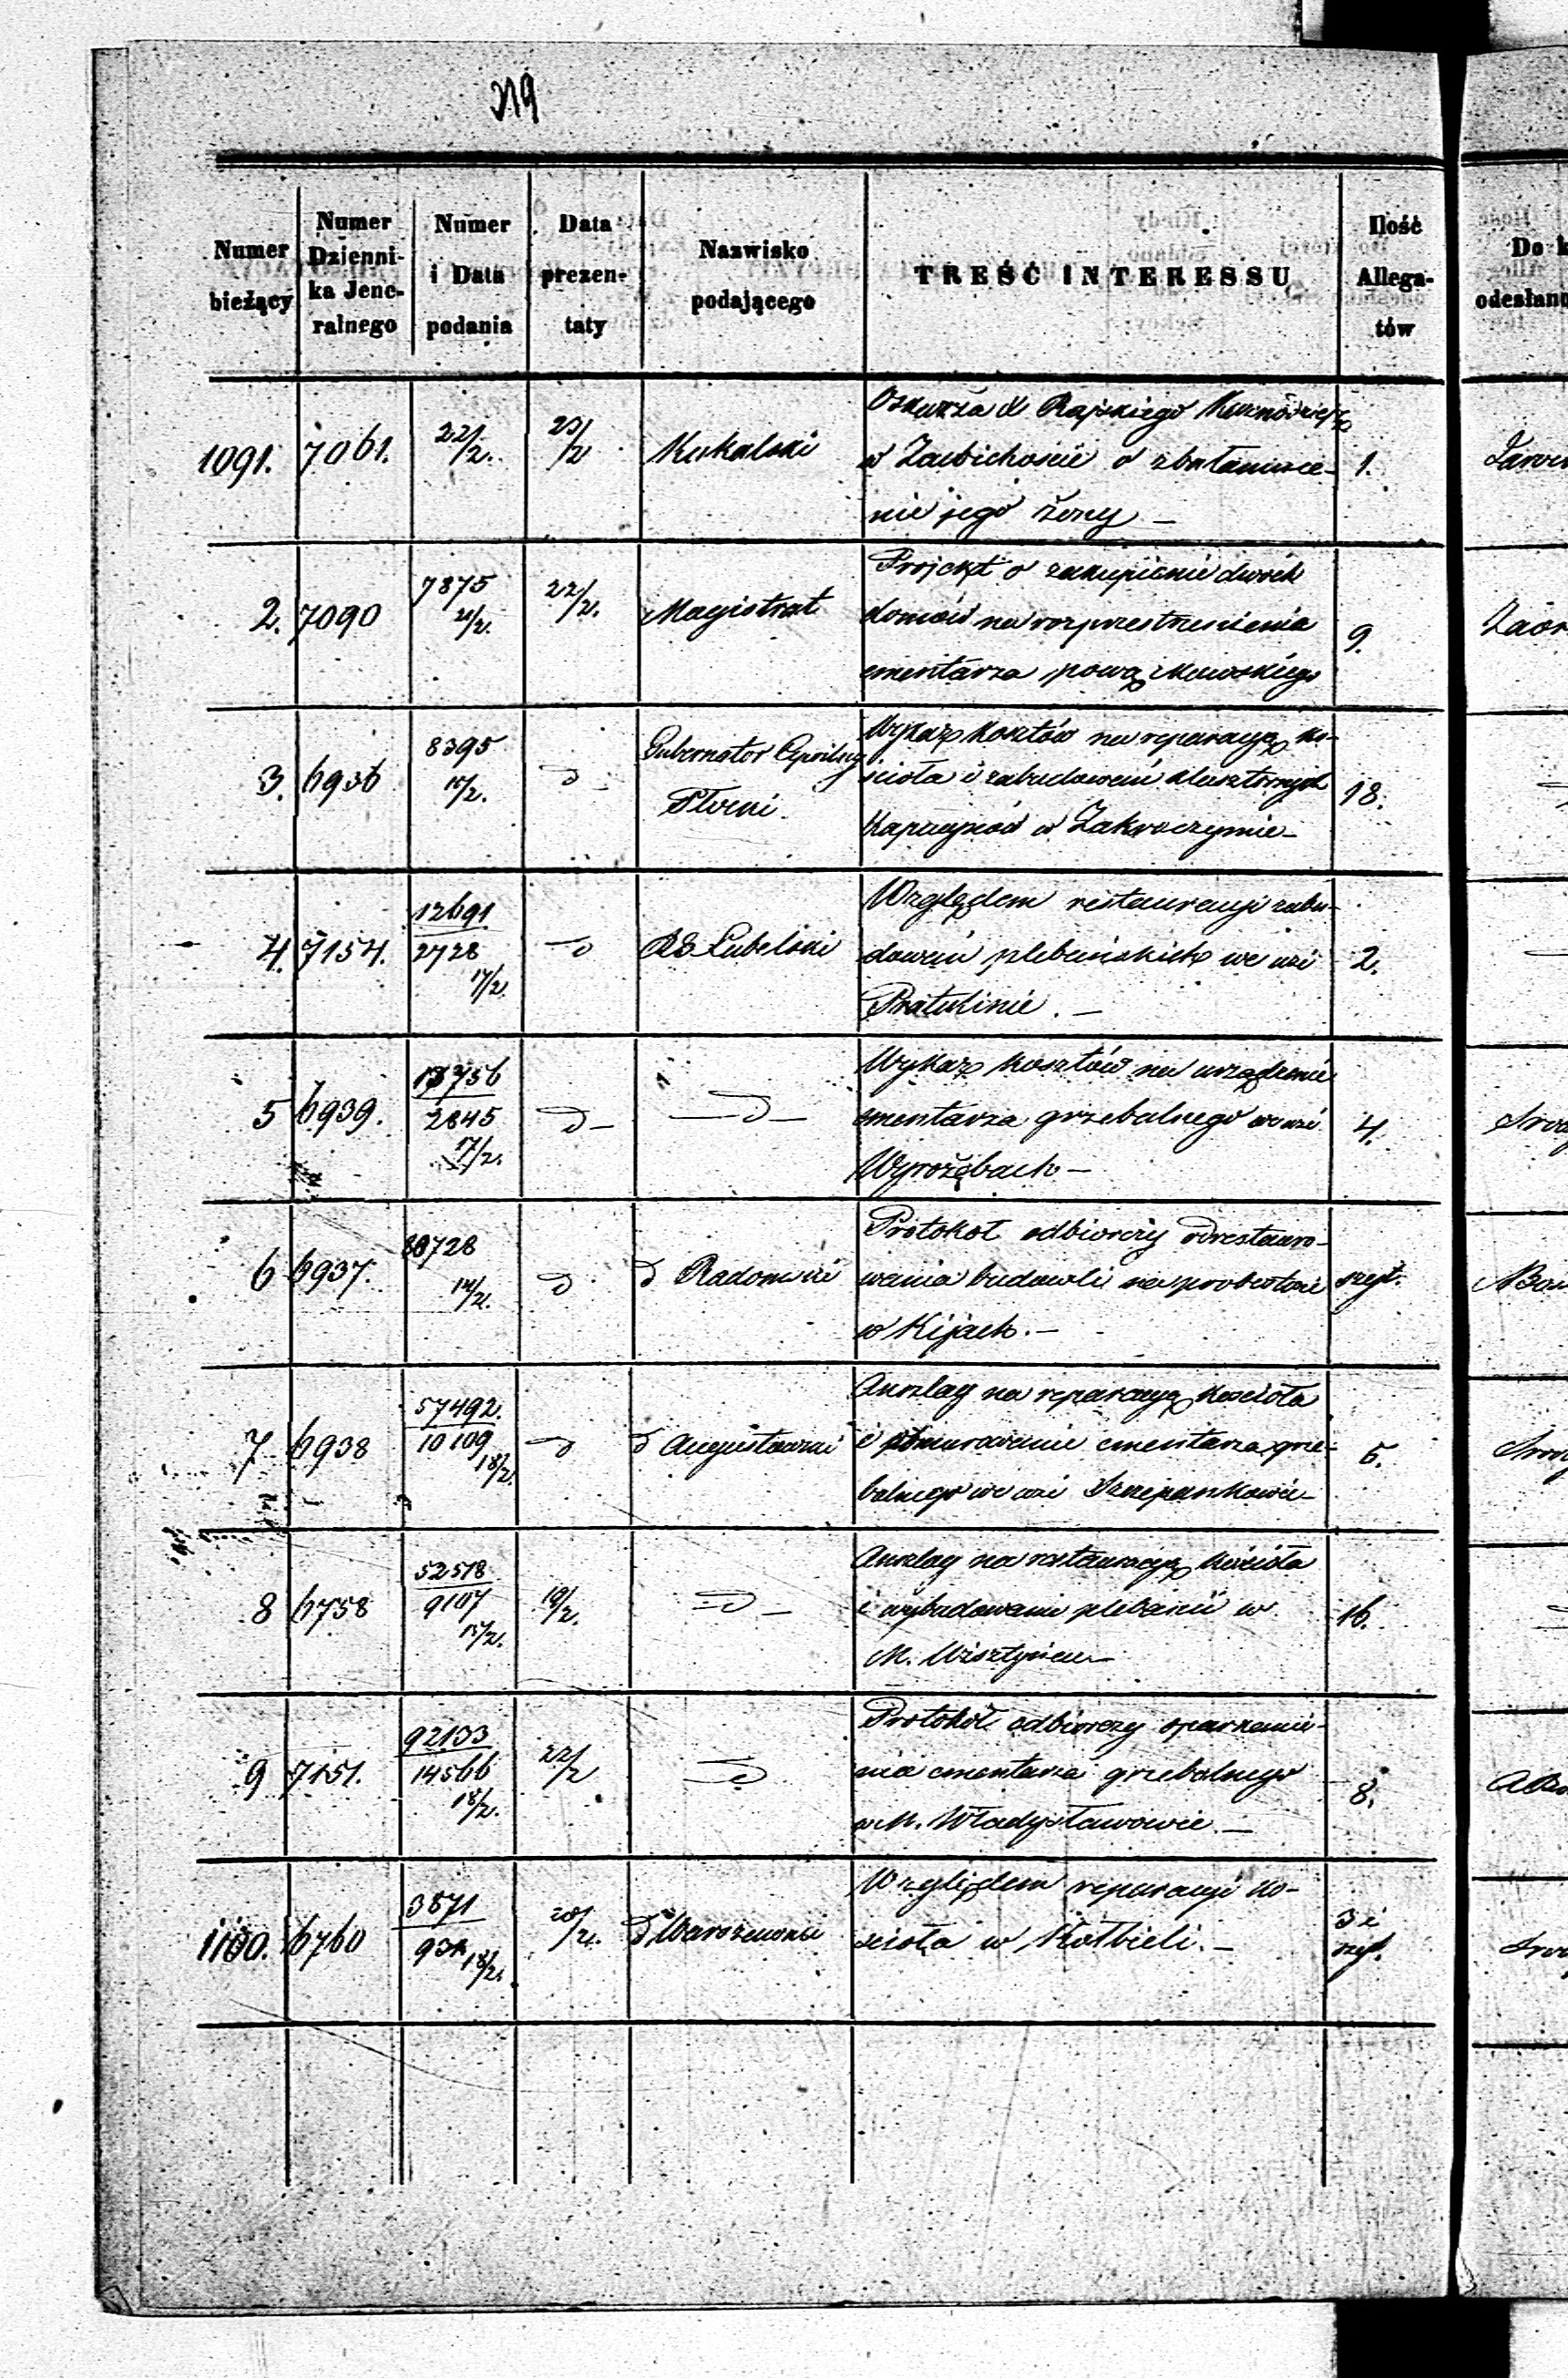 319
Numer bieżący
Numer Dzienni-ka Jene-ralnego
Numer i Data podania
Data prezen-taty
Nazwisko podającego
TREŚĆ INTERESSU
Ilość Allega-tów
Do k
odesłano
1091. 7061. 22/2. 23/2 Kukalski
Oskarża X Rajskiego Kaznodzieję
w Zawichoście o zbałamuce-
nie jego żony — 1.
2. 7090 7875 21/2. 22/2. Magistrat
Projekt o zakupienie dwóch
domów na rozprzestrzenienia
cmentarza powązkowskiego 9.
3. 6936 8395 15/2. D Gubernator Cywilny
Płocki.
Wykaz kosztów na reparacyę ko-
ścioła i zabudowań klasztornych
Kapucynów w Zakroczymie — 18.
4. 7154. 12691 2728 17/2. D RG Lubelski
Względem restauracyi zabu-
dowań plebańskich we wsi
Pratulinie. — 2.
5 6939. 13756 2845 17/2. D — — D —
Wykaz kosztów na urządzenie
cmentarza grzebalnego we wsi
Wyrozębach — 4.
6 6937. 80728 14/2. D D Radomski
Protokół odbiorczy odrestauro-
wania budowli na probostwie
w Kijach. — szyt.
7 6938 57492. 10109 18/2. D D Augustowski
Anszlag na reparacyę kościoła
i obmurowanie cmentarza grze-
balnego we wsi Szczepankowie — 5.
8 6758 52518 9107 15/2. 19/2. D —
Anszlag na restauracyę kościoła
i wybudowanie plebanii w
M. Wisztyńcu — 16.
9 7151. 92133 14566 18/2. 22/2 D
Protokół odbiorczy oparkanie-
nia cmentarza grzebalnego
w M. Władysławowie. — 8.
1100. 6760 3871 18/2. 20/2. D Warszawski
Względem reparacyi ko-
ścioła w Kołbieli. — 3 i
szyt.